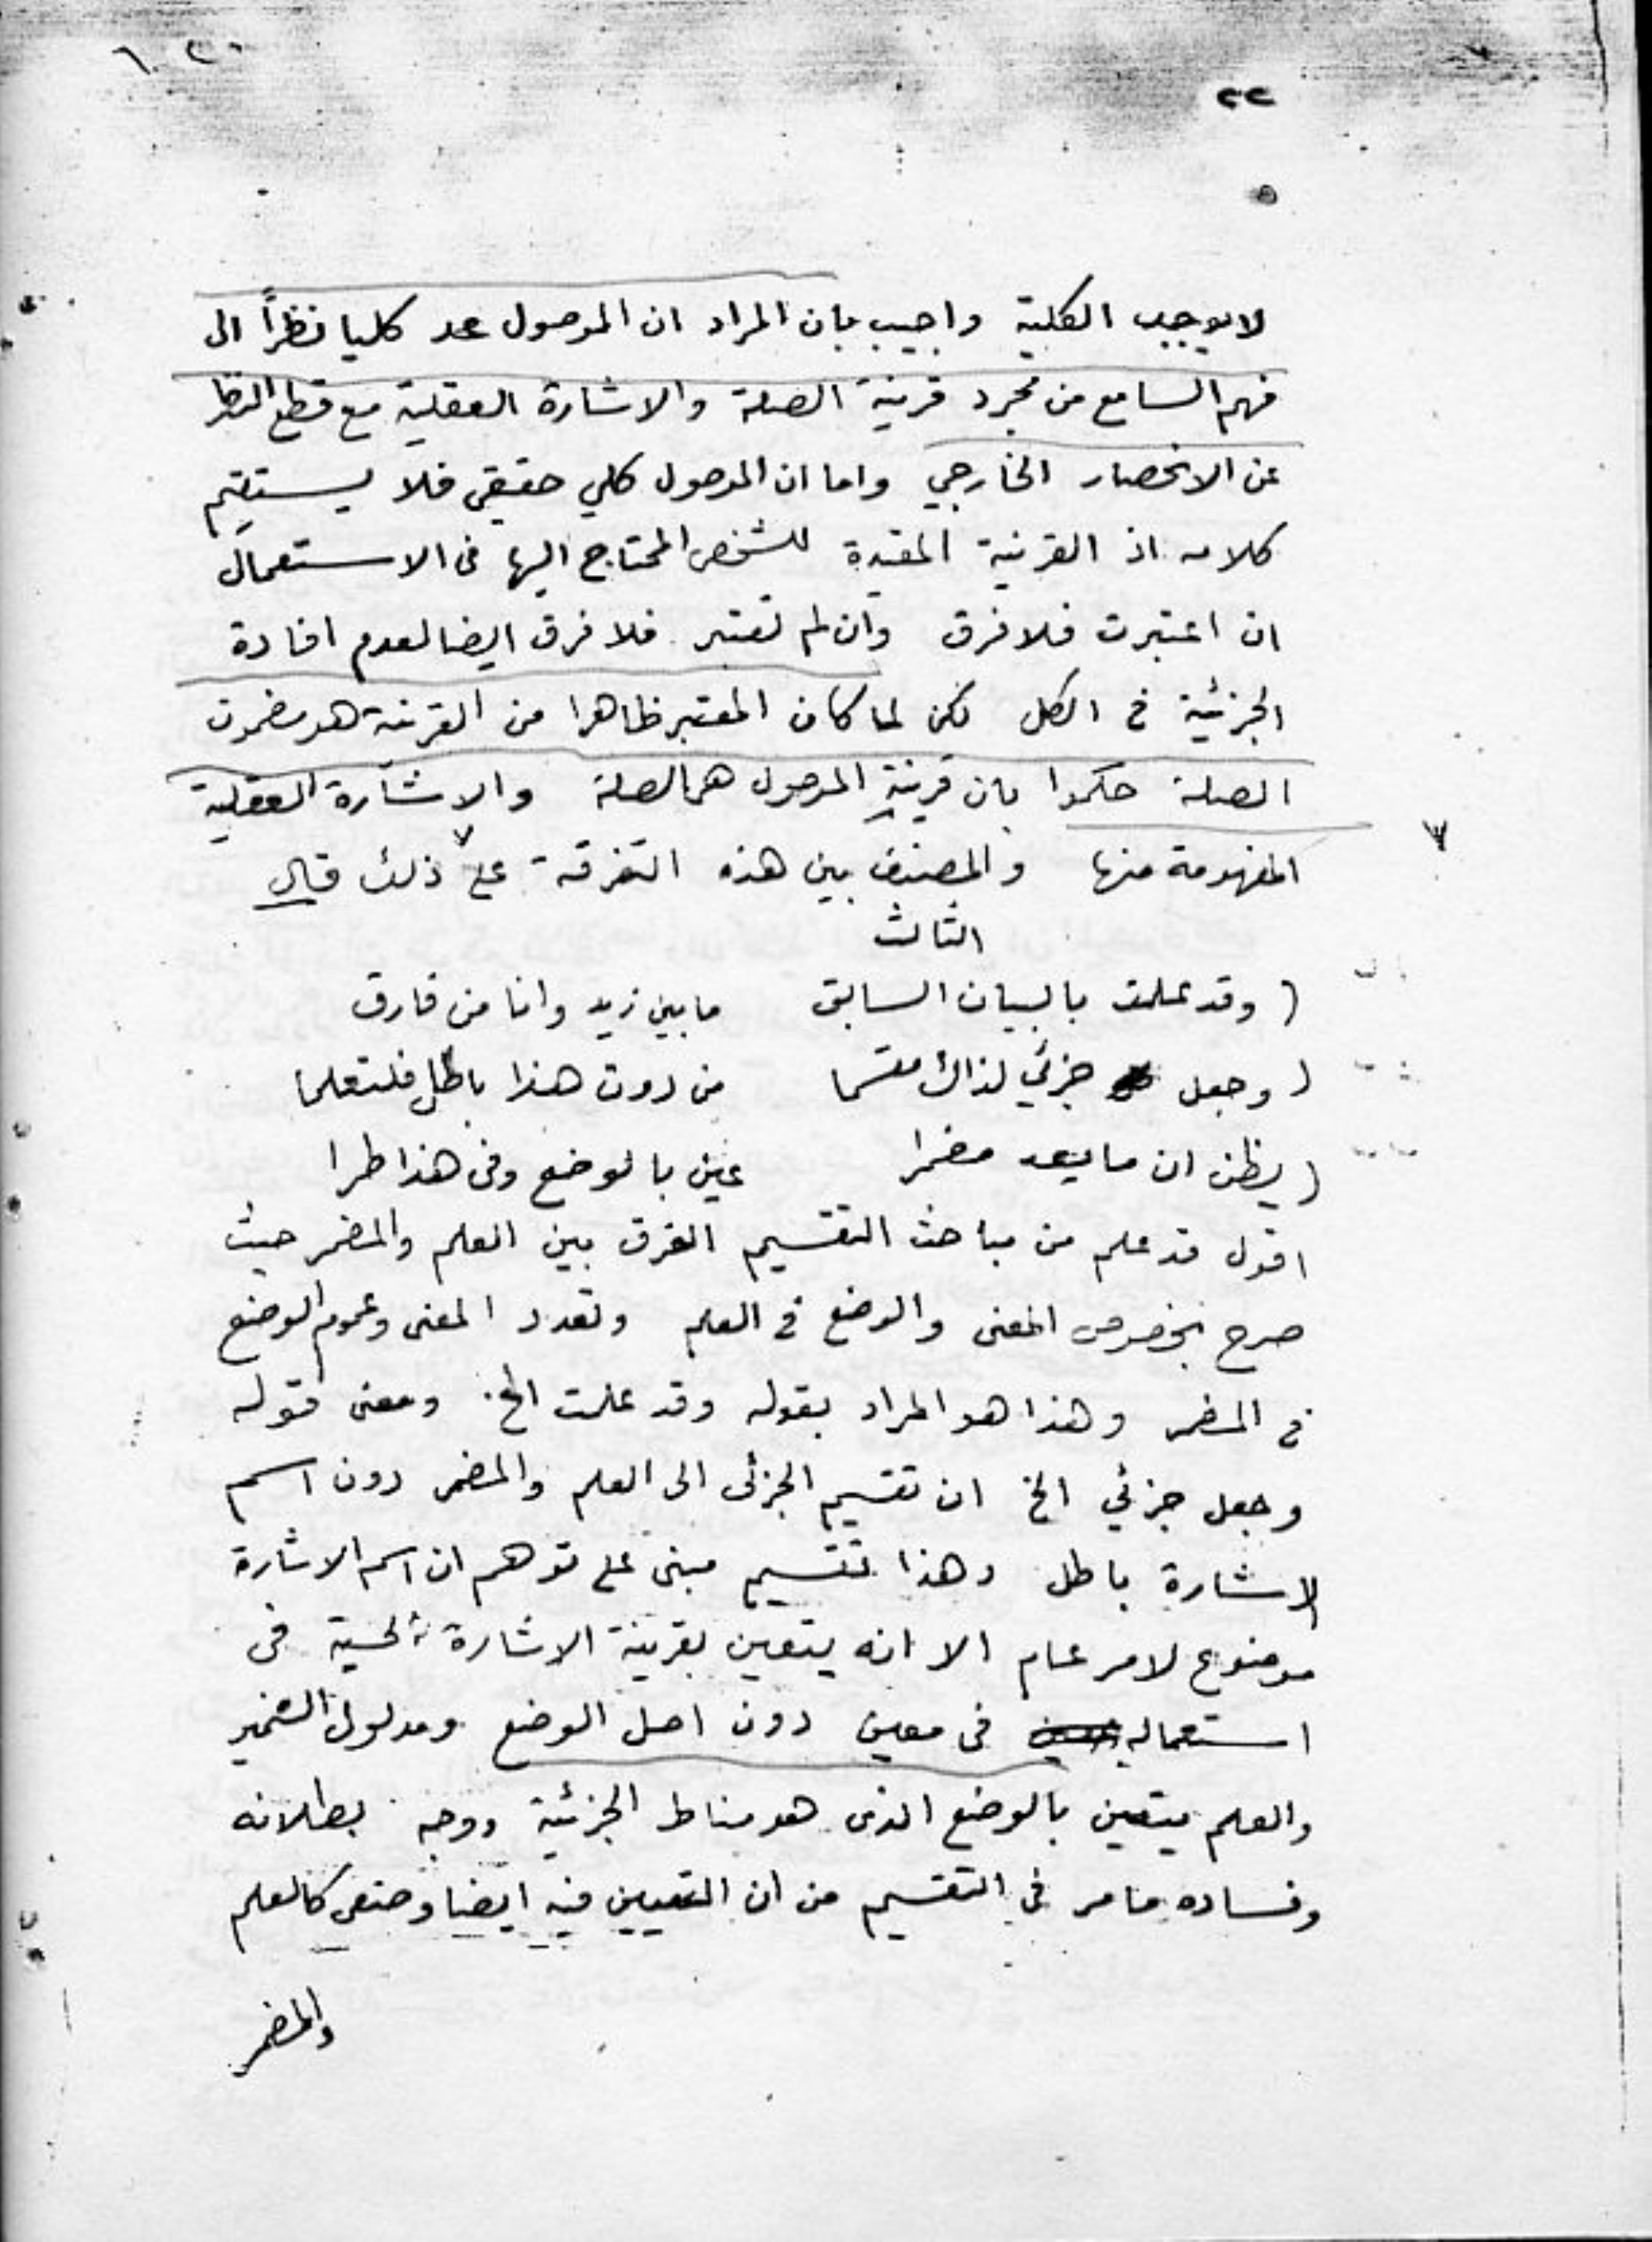 ٢٢
لا يوجب الكلية واجيب بان المراد ان الموصول عد كليا نظراً الى
فهم السامع من مجرد قرينة الصلة والاشارة العقلية مع قطع النظر
عن الانحصار الخارجي واما ان الموصول كلي حقيقى فلا يستقيم
كلامه اذ القرينة المفيدة للشخص المحتاج اليها فى الاستعمال
ان اعتبرت فلا فرق وان لم تعتبر فلا فرق ايضا لعدم افادة
الجزئية فى الكل لكن لما كان المعتبر ظاهرا من القرينة هو مضمون
الصلة حكموا بان قرينة الموصول هى الصلة والاشارة العقلية
المفهومة منها والمصنف بين هذه التفرقة على ذلك قال
الثالث
( وقد علمت بالبيان السابق ما بين زيد وانا من فارق
( وجعل جزئي لذاك مقسما من دون هذا باطل فلتعلما
( يظن ان ما يعد مضمرا عين بالوضع وفى هذا طرا
اقول قد علم من مباحث التقسيم الفرق بين العلم والمضمر حيث
صرح بخصوص المعنى والوضع فى العلم وتعدد المعنى وعموم الوضع
فى المضمر وهذا هو المراد بقوله وقد علمت الخ. ومعنى قوله
وجعل جزئي الخ ان تقسيم الجزئى الى العلم والمضمر دون اسم
الاشارة باطل وهذا تقسيم مبنى على توهم ان اسم الاشارة
موضوع لامر عام الا انه يتعين بقرينة الاشارة الحسية فى
استعماله فى معين دون اصل الوضع ومدلول الضمير
والعلم يتعين بالوضع الذى هو مناط الجزئية ووجه بطلانه
وفساده ما مر فى التقسيم من ان التعيين فيه ايضا وضعى كالعلم
والمضمر